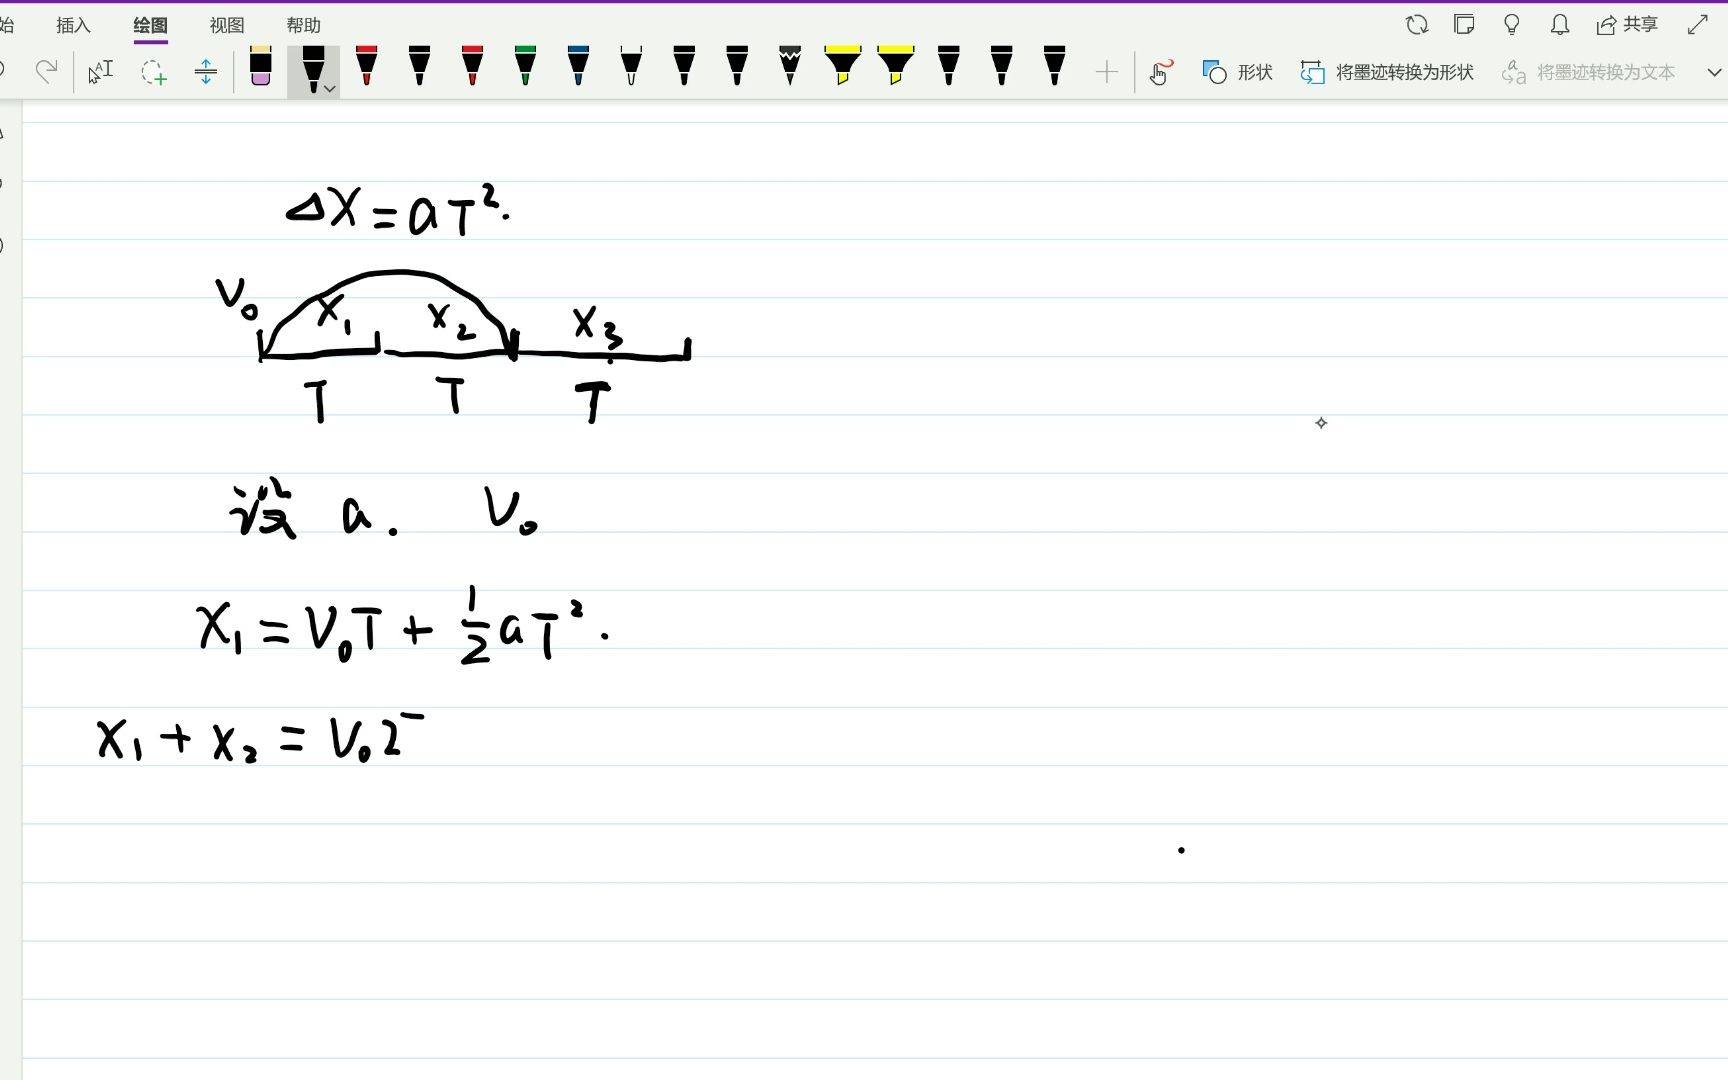 插入 绘图 视图 帮助 共享
形状 将墨迹转换为形状 将墨迹转换为文本
ΔX=aT².
V₀ X₁ X₂ X₃
T T T
设 a. V₀
X₁=V₀T+½aT².
X₁+X₂=V₀2